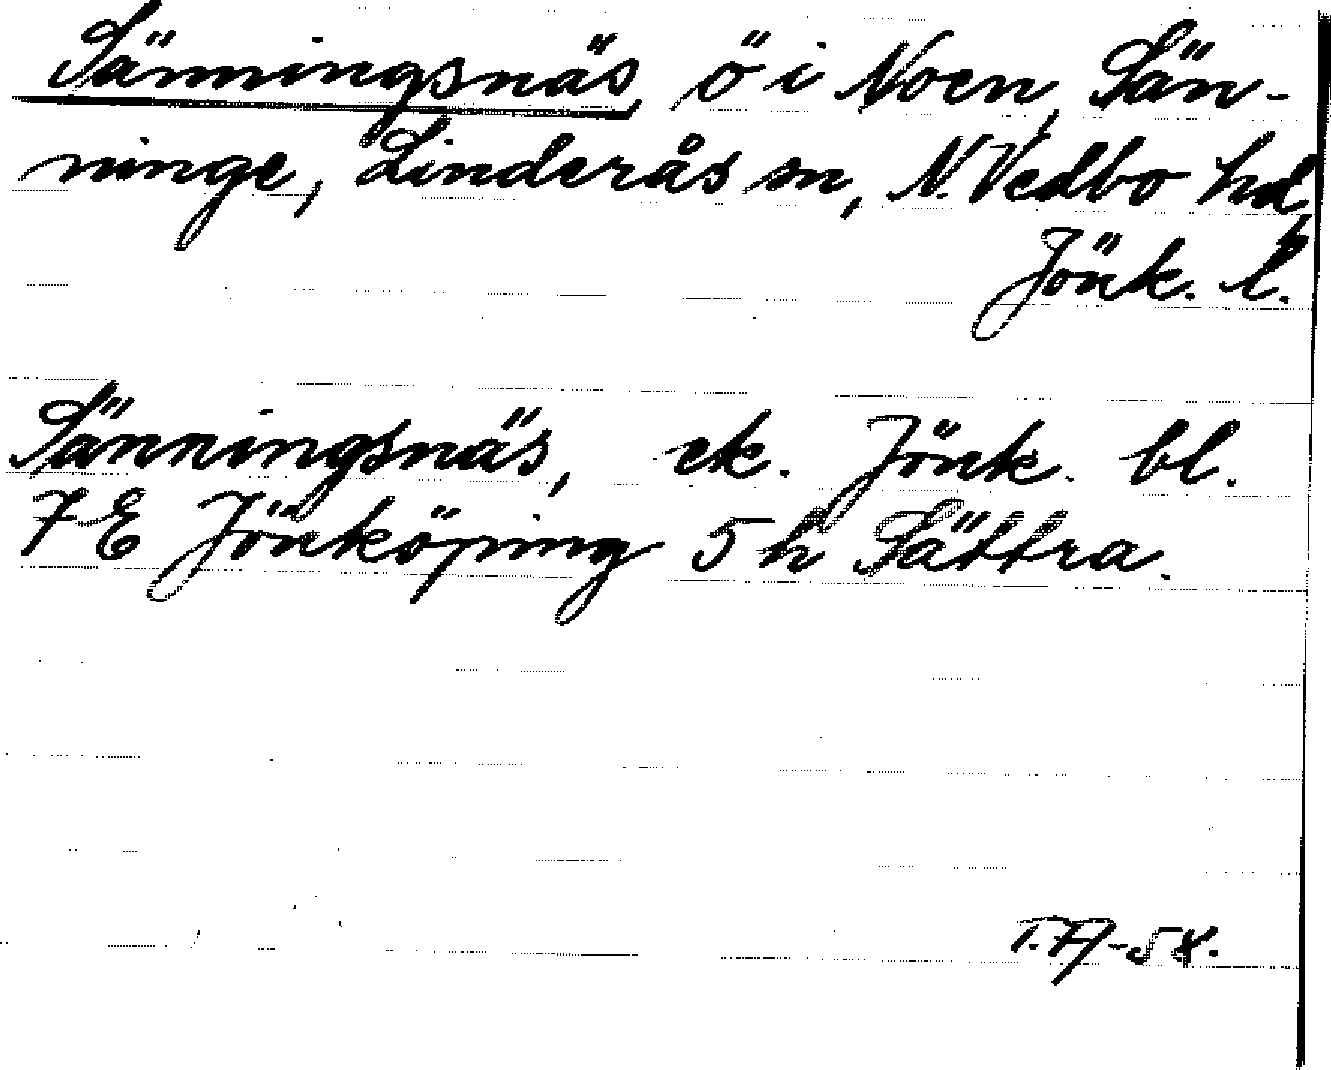 Sänningsnäs, ö i Noen, Sän-
ninge, Linderås sn, N. Vedbo hd,
Jönk. l.
Sänningsnäs, ek. Jönk. bl.
7E Jönköping 5 h Sättra.